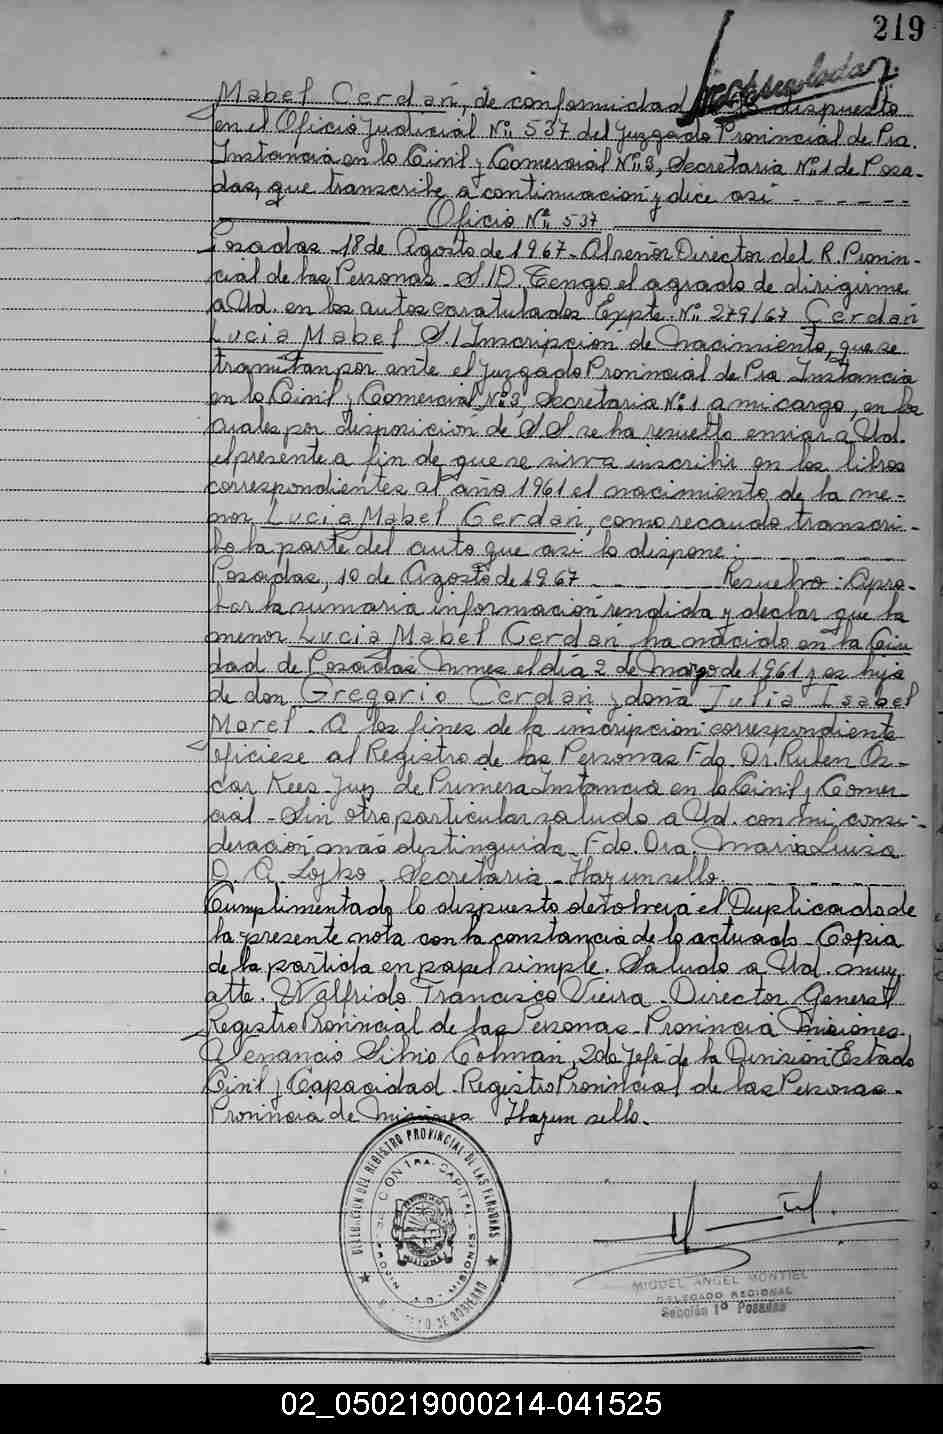 219
Mabel Cerdán, de conformidad dispuesto
en el Oficio Judicial Nº 537 del Juzgado Provincial de Pra.
Instancia en lo Civil y Comercial Nº 3, Secretaria Nº 1 de Posa-
das, que transcribe a continuación y dice así - - - - - -
Oficio Nº 537
Posadas 18 de Agosto de 1967 - Al señor Director del R. Provin-
cial de las Personas - S/D. Tengo el agrado de dirigirme
a Ud. en los autos caratulados Expte. Nº 279/67 Cerdán
Lucia Mabel S/Inscripción de Nacimiento, que se
tramitan por ante el Juzgado Provincial de Pra Instancia
en lo Civil y Comercial Nº 3, Secretaria Nº 1 a mi cargo, en los
cuales por disposición de S.S. se ha resuelto enviar a Ud.
el presente a fin de que se sirva inscribir en los libros
correspondientes al año 1961 el nacimiento de la me-
nor Lucia Mabel Cerdán, como recaudo transcri-
bo la parte del auto que así lo dispone:
Posadas, 10 de Agosto de 1967 - - Resuelvo: Apro-
bar la sumaria información rendida y declar que la
menor Lucia Mabel Cerdán ha nacido en la Ciu
dad de Posadas Mnes el día 2 de Marzo de 1961 y es hija
de don Gregorio Cerdán y doña Julia Isabel
Morel - A los fines de la inscripción correspondiente
ofíciese al Registro de las Personas Fdo. Dr. Ruben Os-
car Kees - Juez de Primera Instancia en lo Civil y Comer
cial - Sin otro particular saludo a Ud. con mi consi-
deración más distinguida - Fdo. Dra Maria Luisa
Lojko - Secretaria - Hay un sello.
Cumplimentado lo dispuesto devolverá el Duplicado de
la presente nota con la constancia de lo actuado - Copia
de la partida en papel simple. Saludo a Ud. muy
atte. Walfrido Francisco Vieira - Director General
Registro Provincial de las Personas - Provincia Misiones
A Venancio Silvio Colman, 2do Jefe de la División Estado
Civil y Capacidad - Registro Provincial de las Personas -
Provincia de Misiones Hay un sello.
DELEGACION DEL REGISTRO PROVINCIAL DE LAS PERSONAS
CAPITAL
MISIONES
DE GOBIERNO
MIGUEL ANGEL MONTIEL
DELEGADO REGIONAL
Sección 1ª Posadas
02_050219000214-041525